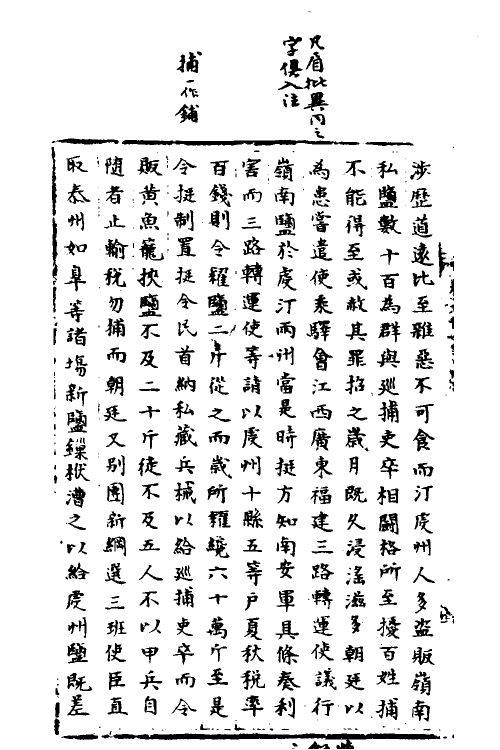 凡眉批異同之
字俱入注
捕一作鋪
涉歷道遠比至雜惡不可食而汀虔州人多盜販嶺南
私鹽數十百為群與巡捕吏卒相鬭格所至擾百姓捕
不能得至或赦其罪招之歲月既久浸淫滋多朝廷以
為患嘗遣使乘驛會江西廣東福建三路轉運使議行
嶺南鹽於虔汀兩州當是時挺方知南安軍具條奏利
害而三路轉運使等請以虔州十縣五等戶夏秋稅率
百錢則令糴鹽二斤從之而歲所糴纔六十萬斤至是
令挺制置挺令民首納私藏兵械以給巡捕吏卒而令
販黃魚籠挾鹽不及二十斤徒不及五人不以甲兵自
隨者止輸稅勿捕而朝廷又別團新綱選三班使臣直
取泰州如皐等諸場新鹽鏁栿漕之以給虔州鹽既差